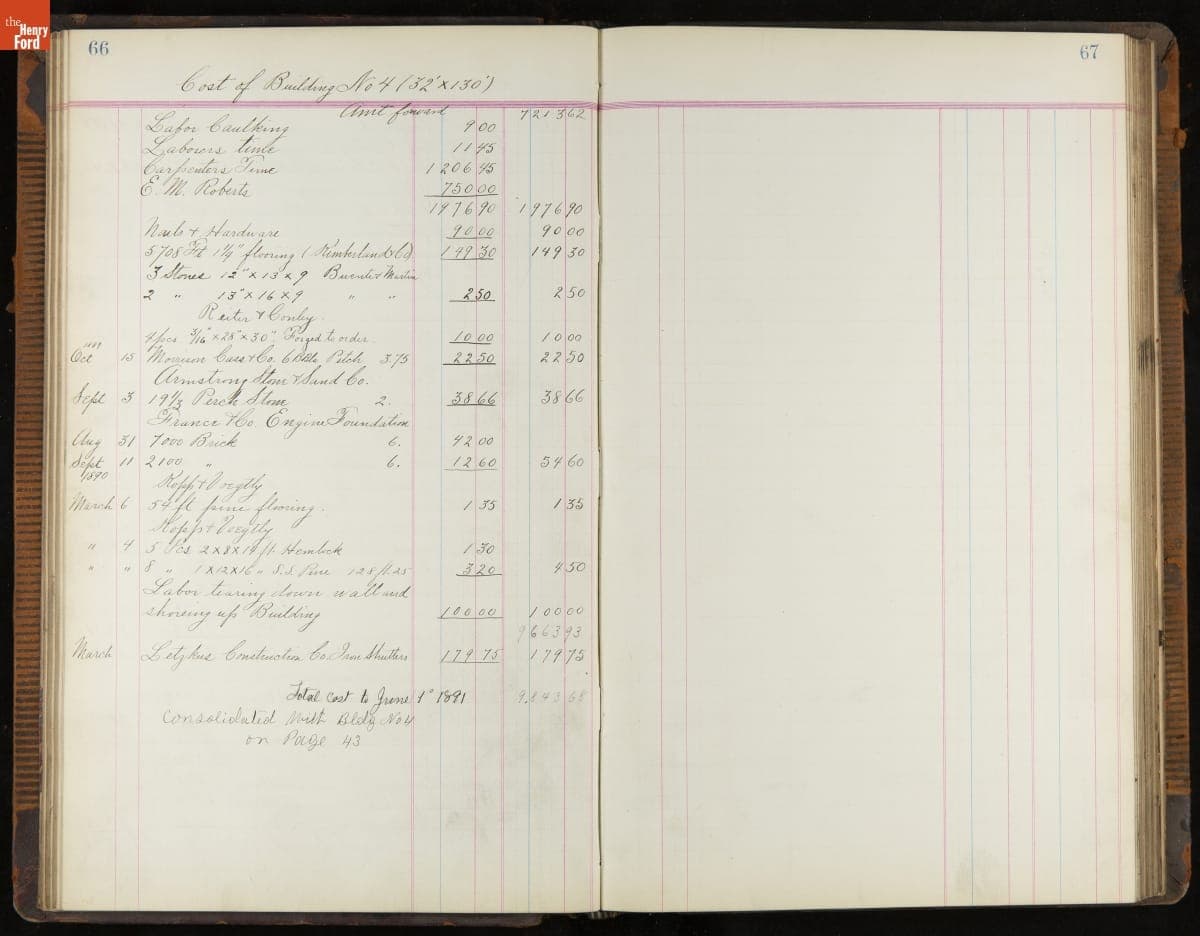 the
Henry
Ford
66
67
Cost of Building No 4 (32' x 130')
Amt forward 7213 62
Labor Caulking 9 00
Laborers time 11 45
Carpenters Time 1206 45
E. M. Roberts 750 00
1976 90 1976 90
Nails & Hardware 90 00 90 00
5708 Ft 1¼" flooring ( Kimberland & Co) 149 30 149 30
3 Stones 12" x 13 x 9 Buente & Martin
2 " 13" x 16 x 9 " " 2 50 2 50
Reiter & Conley
4 pcs 3/16" x 28" x 30" Forged to order 10 00 10 00
Oct 15 Morrison Cass & Co. 6 Bbls Pitch 3.75 22 50 22 50
Armstrong Stone & Sand Co.
Sept 3 19 1/3 Perch Stone 2. 38 66 38 66
France & Co. Engine Foundation
Aug 31 7000 Brick 6. 42 00
Sept 11 2100 " 6. 12 60 54 60
1890
Kopp & Voegtly
March 6 54 ft pine flooring. 1 35 1 35
Kopp & Voegtly
" 4 5 Pcs 2 x 8 x 14 ft. Hemlock 1 30
" " 8 " 1 x 12 x 16 " S.S. Pine 128 ft. 25 3 20 4 50
Labor tearing down wall and
shoreing up Building 100 00 100 00
9663 93
March Letzkus Construction Co. Iron Shutters 179 75 179 75
Total cost to June 1st 1891 9,843 68
Consolidated With Bldg No 4
on Page 43